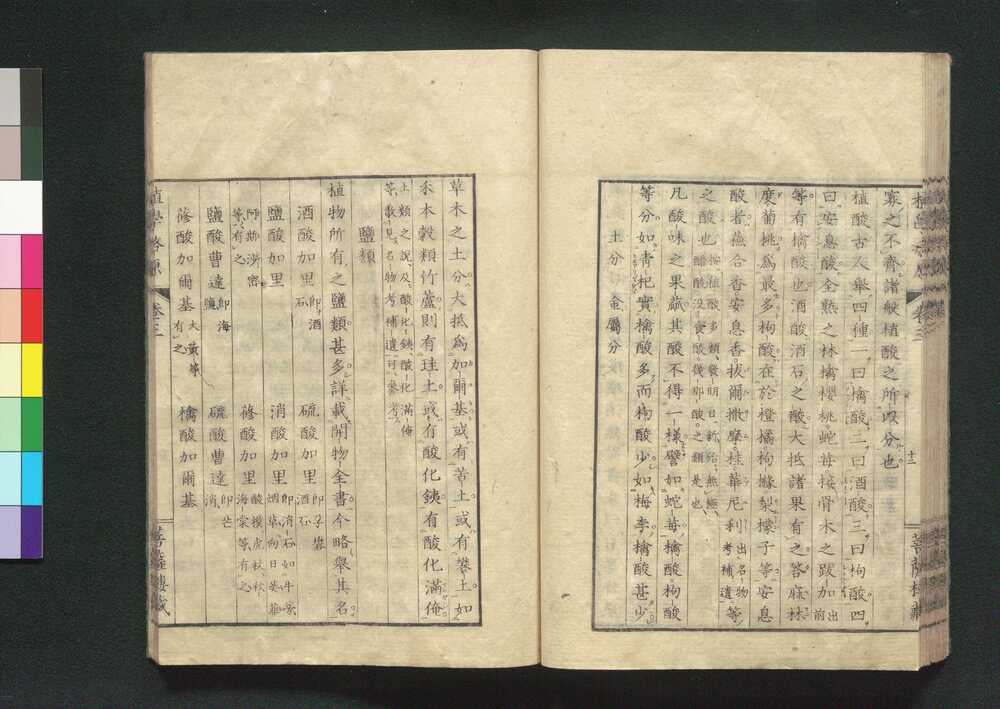 寡之不齊諸般植酸之所以分也
植酸古人舉四種一曰檎酸二曰酒酸三曰枸酸四
曰安息酸全熟之林檎櫻桃蛇苺接骨木之跋加出前
等有檎酸也酒酸酒石之酸大抵諸果有之答麻林
度菊桃爲最多枸酸在於橙橘枸櫞梨樣子等安息
酸者蘇合香安息香拔爾撒摩桂華尼利出名物考補遺等
之酸也
凡酸味之果蓏其酸不得一樣譬如蛇苺檎酸枸酸
等分如青杷實檎酸多而枸酸少如梅李檎酸甚少
土分 金屬分
草木之土分大抵爲加爾基或有苦土或有礬土如
禾本穀類竹蘆則有珪土或有酸化鐵有酸化滿俺
土類之說及酸化鐵酸化滿俺
等數見名物考補遺可參考
鹽類
植物所有之鹽類甚多詳載開物全書今略舉其名
酒酸加里 即酒石 硫酸加里
鹽酸加里 消酸加里 即消石如牛蒡
蓚酸加里
鹽酸曹達 即海鹽 硫酸曹達 即芒消
蓚酸加爾基 大黃等有之 檎酸加爾基
植學啓原 卷三
菩薩樓藏
十二